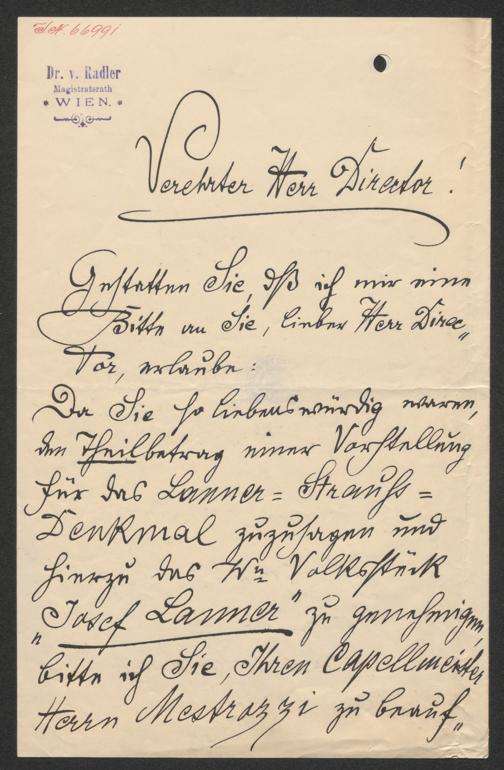 I.N. 66991
Dr. v. Radler
Magistratsrath
* WIEN. *
Verehrter Herr Director!
Gestatten Sie, dß ich mir eine
Bitte an Sie, lieber Herr Direc„
tor, erlaube:
Da Sie so liebenswürdig waren,
den Theilbetrag einer Vorstellung
für das Lanner = Strauß =
Denkmal zuzusagen und
hierzu das Wr. Volksstück
„Josef Lanner" zu genehmigen,
bitte ich Sie, Ihren Capellmeister
Herrn Mestrozzi zu beauf„